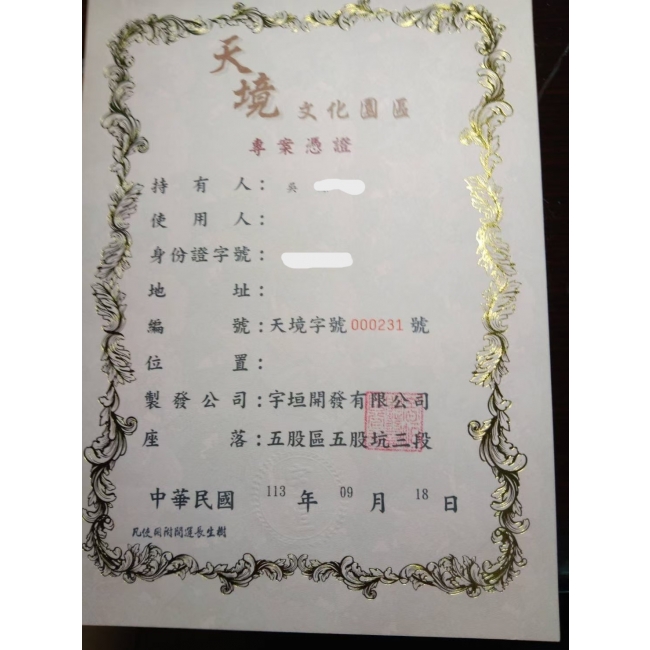 天境 文化園區
專案憑證
持有人：吳
使用人：
身份證字號：
地址：
編號：天境字號 000231 號
位置：
製發公司：宇垣開發有限公司
座落：五股區五股坑三段
中華民國 113 年 09 月 18 日
凡使用附開運長生樹